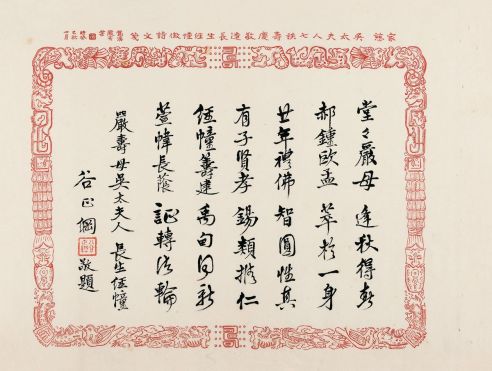 家慈 吳太夫人七秩壽慶敬建長生經幢徵詩文箋
堂々嚴母 秋得春
郝鍾歐孟 萃於一身
廿年禮佛 智圓性真
有子賢孝 錫類推仁
經幢籌建 萬句同新
萱幃長蔭 証轉法輪
嚴壽母吳太夫人 長生經幢
谷正綱 敬題